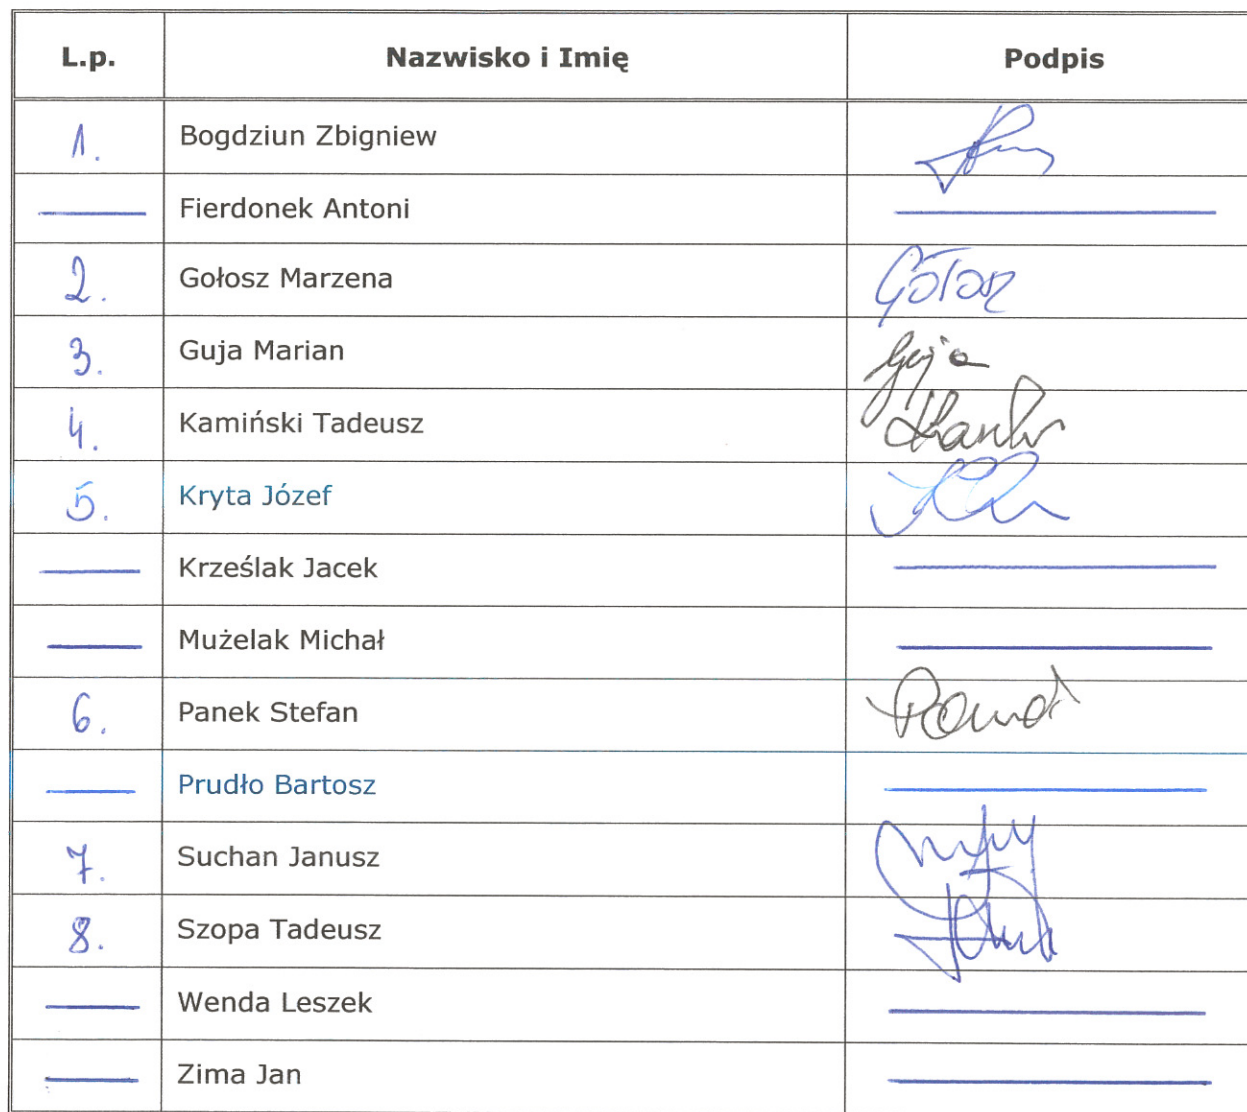 L.p. Nazwisko i Imię Podpis
1. Bogdziun Zbigniew
Fierdonek Antoni
2. Gołosz Marzena Gołosz
3. Guja Marian Guja
4. Kamiński Tadeusz
5. Kryta Józef
Krześlak Jacek
Mużelak Michał
6. Panek Stefan
Prudło Bartosz
7. Suchan Janusz
8. Szopa Tadeusz
Wenda Leszek
Zima Jan